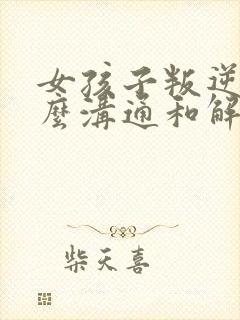 女孩子叛逆
麼溝通和解
柴天喜